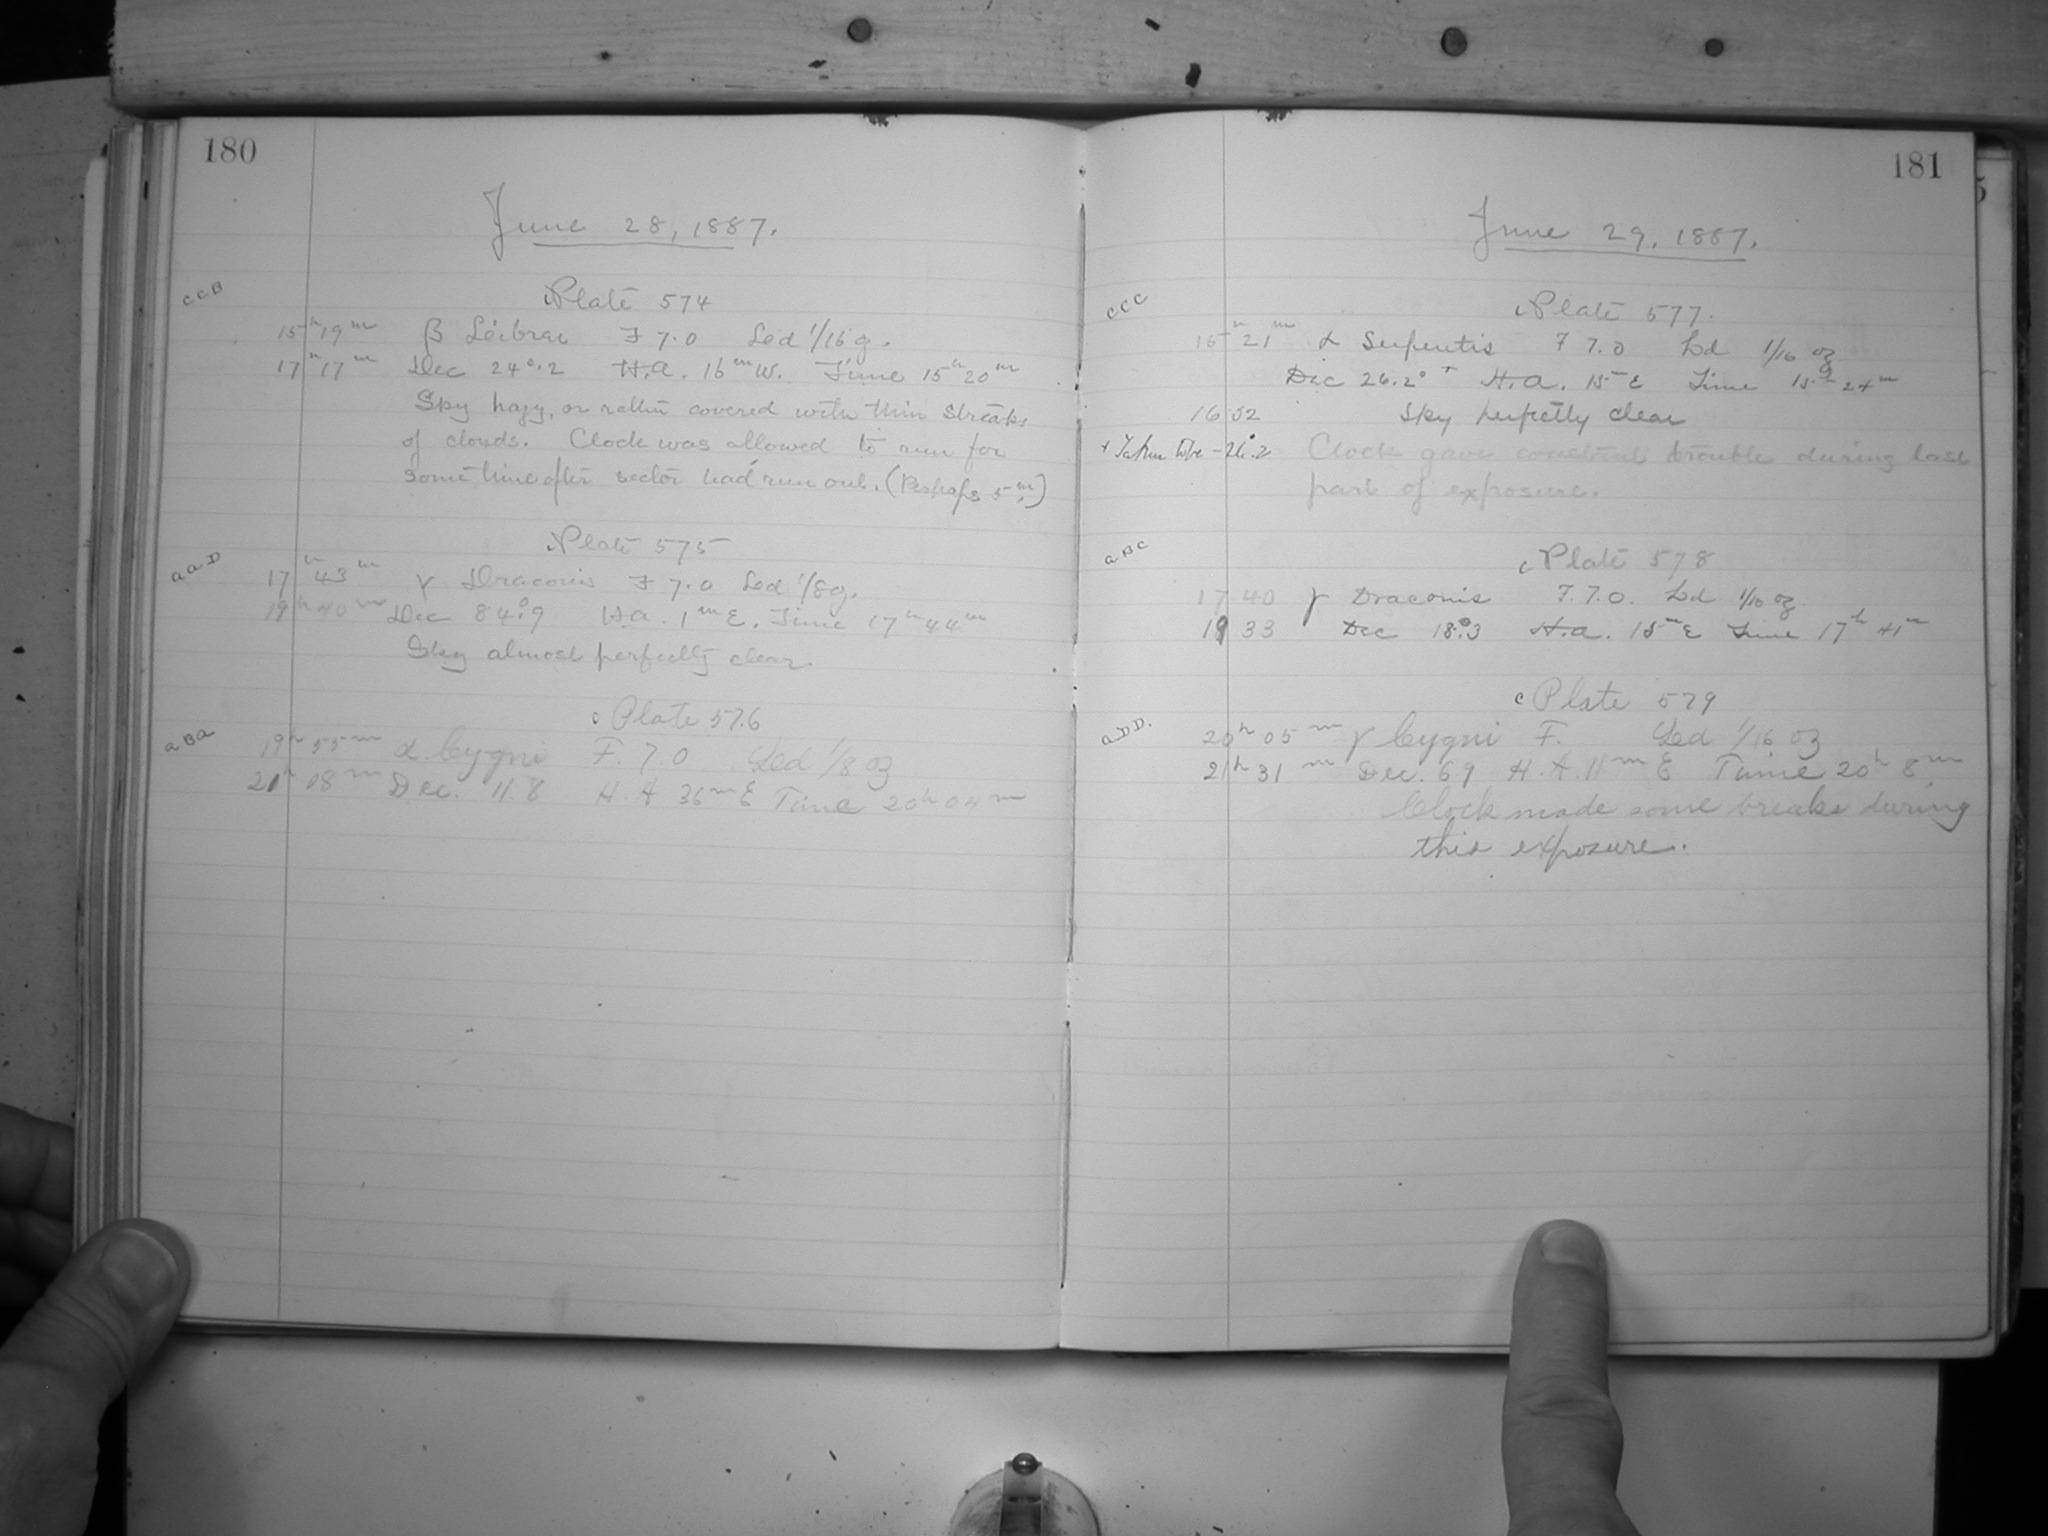 180
June 28, 1887.
CCB
Plate 574
15h 19m β Leibrae F 7.0 Led 1/16 g.
17h 17m Dec 24°.2 H.A. 16m W. Time 15h 20m
Sky hazy, or rather covered with thin streaks
of clouds. Clock was allowed to run for
some time after sector had run out. (Perhaps 5m.)
Plate 575
aaD
17h 43m γ Draconis F 7.0 Led 1/8 g.
19h 40m Dec 84°.9 H.a. 1m E. Time 17h 44m
Sky almost perfectly clear.
c Plate 576
aBa
19h 55m α Cygni F. 7.0 Led 1/8 oz
20h 08m Dec. 11.8 H.A 36m E Time 20h 04m
181
June 29, 1887.
CCC
Plate 577.
15h 21m α Serpentis F 7.0 Ld 1/16 oz
Dec 26.2° + H.A. 15m E Time 15h 24m
16 52 Sky perfectly clear
+ Taken to be -26°.2 Clock gave constant trouble during last
part of exposure.
aBC
c Plate 578
17 40 γ Draconis F. 7.0. Ld 1/16 oz
19 33 Dec 18°.3 H.a. 15m E Time 17h 41m
c Plate 579
aDD.
20h 05m γ Cygni F. Led 1/16 oz
21h 31m Dec. 69 H.A. 11m E Time 20h 8m
Clock made some breaks during
this exposure.